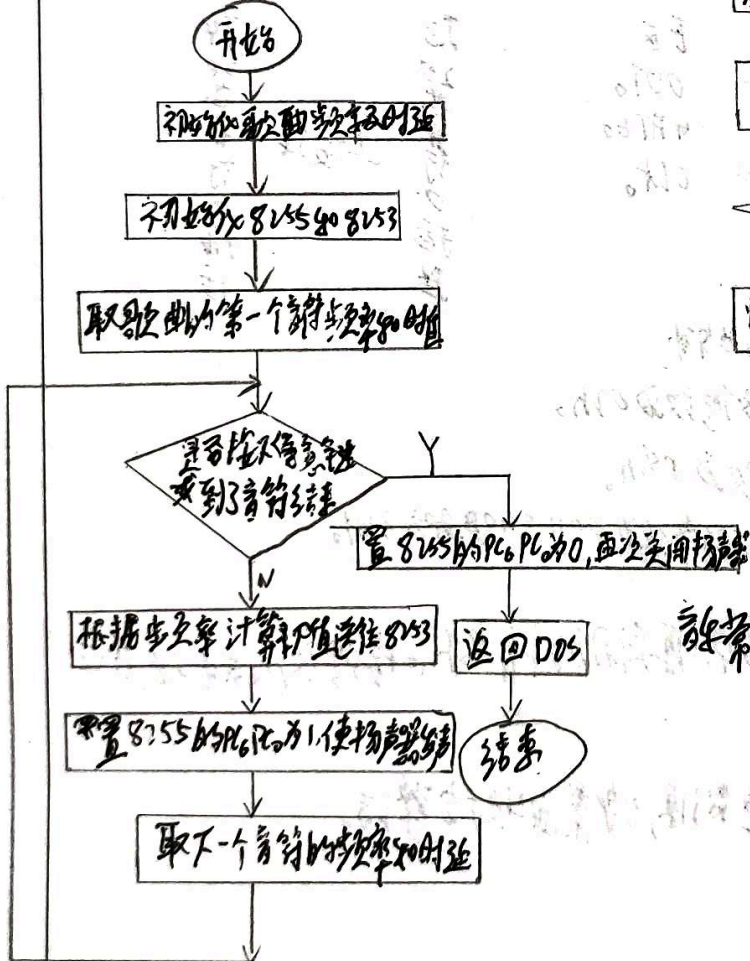 开始
初始化歌曲频率及时延
初始化8255和8253
取歌曲的第一个音符频率和时值
是否按下任意键
或到了音符结束
Y
N
置8255的PC6PC0为0,再次关闭扬声器
根据频率计算初值送往8253
返回DOS
音乐
置8255的PC6PC0为1,使扬声器发声
结束
取下一个音符的频率和时延